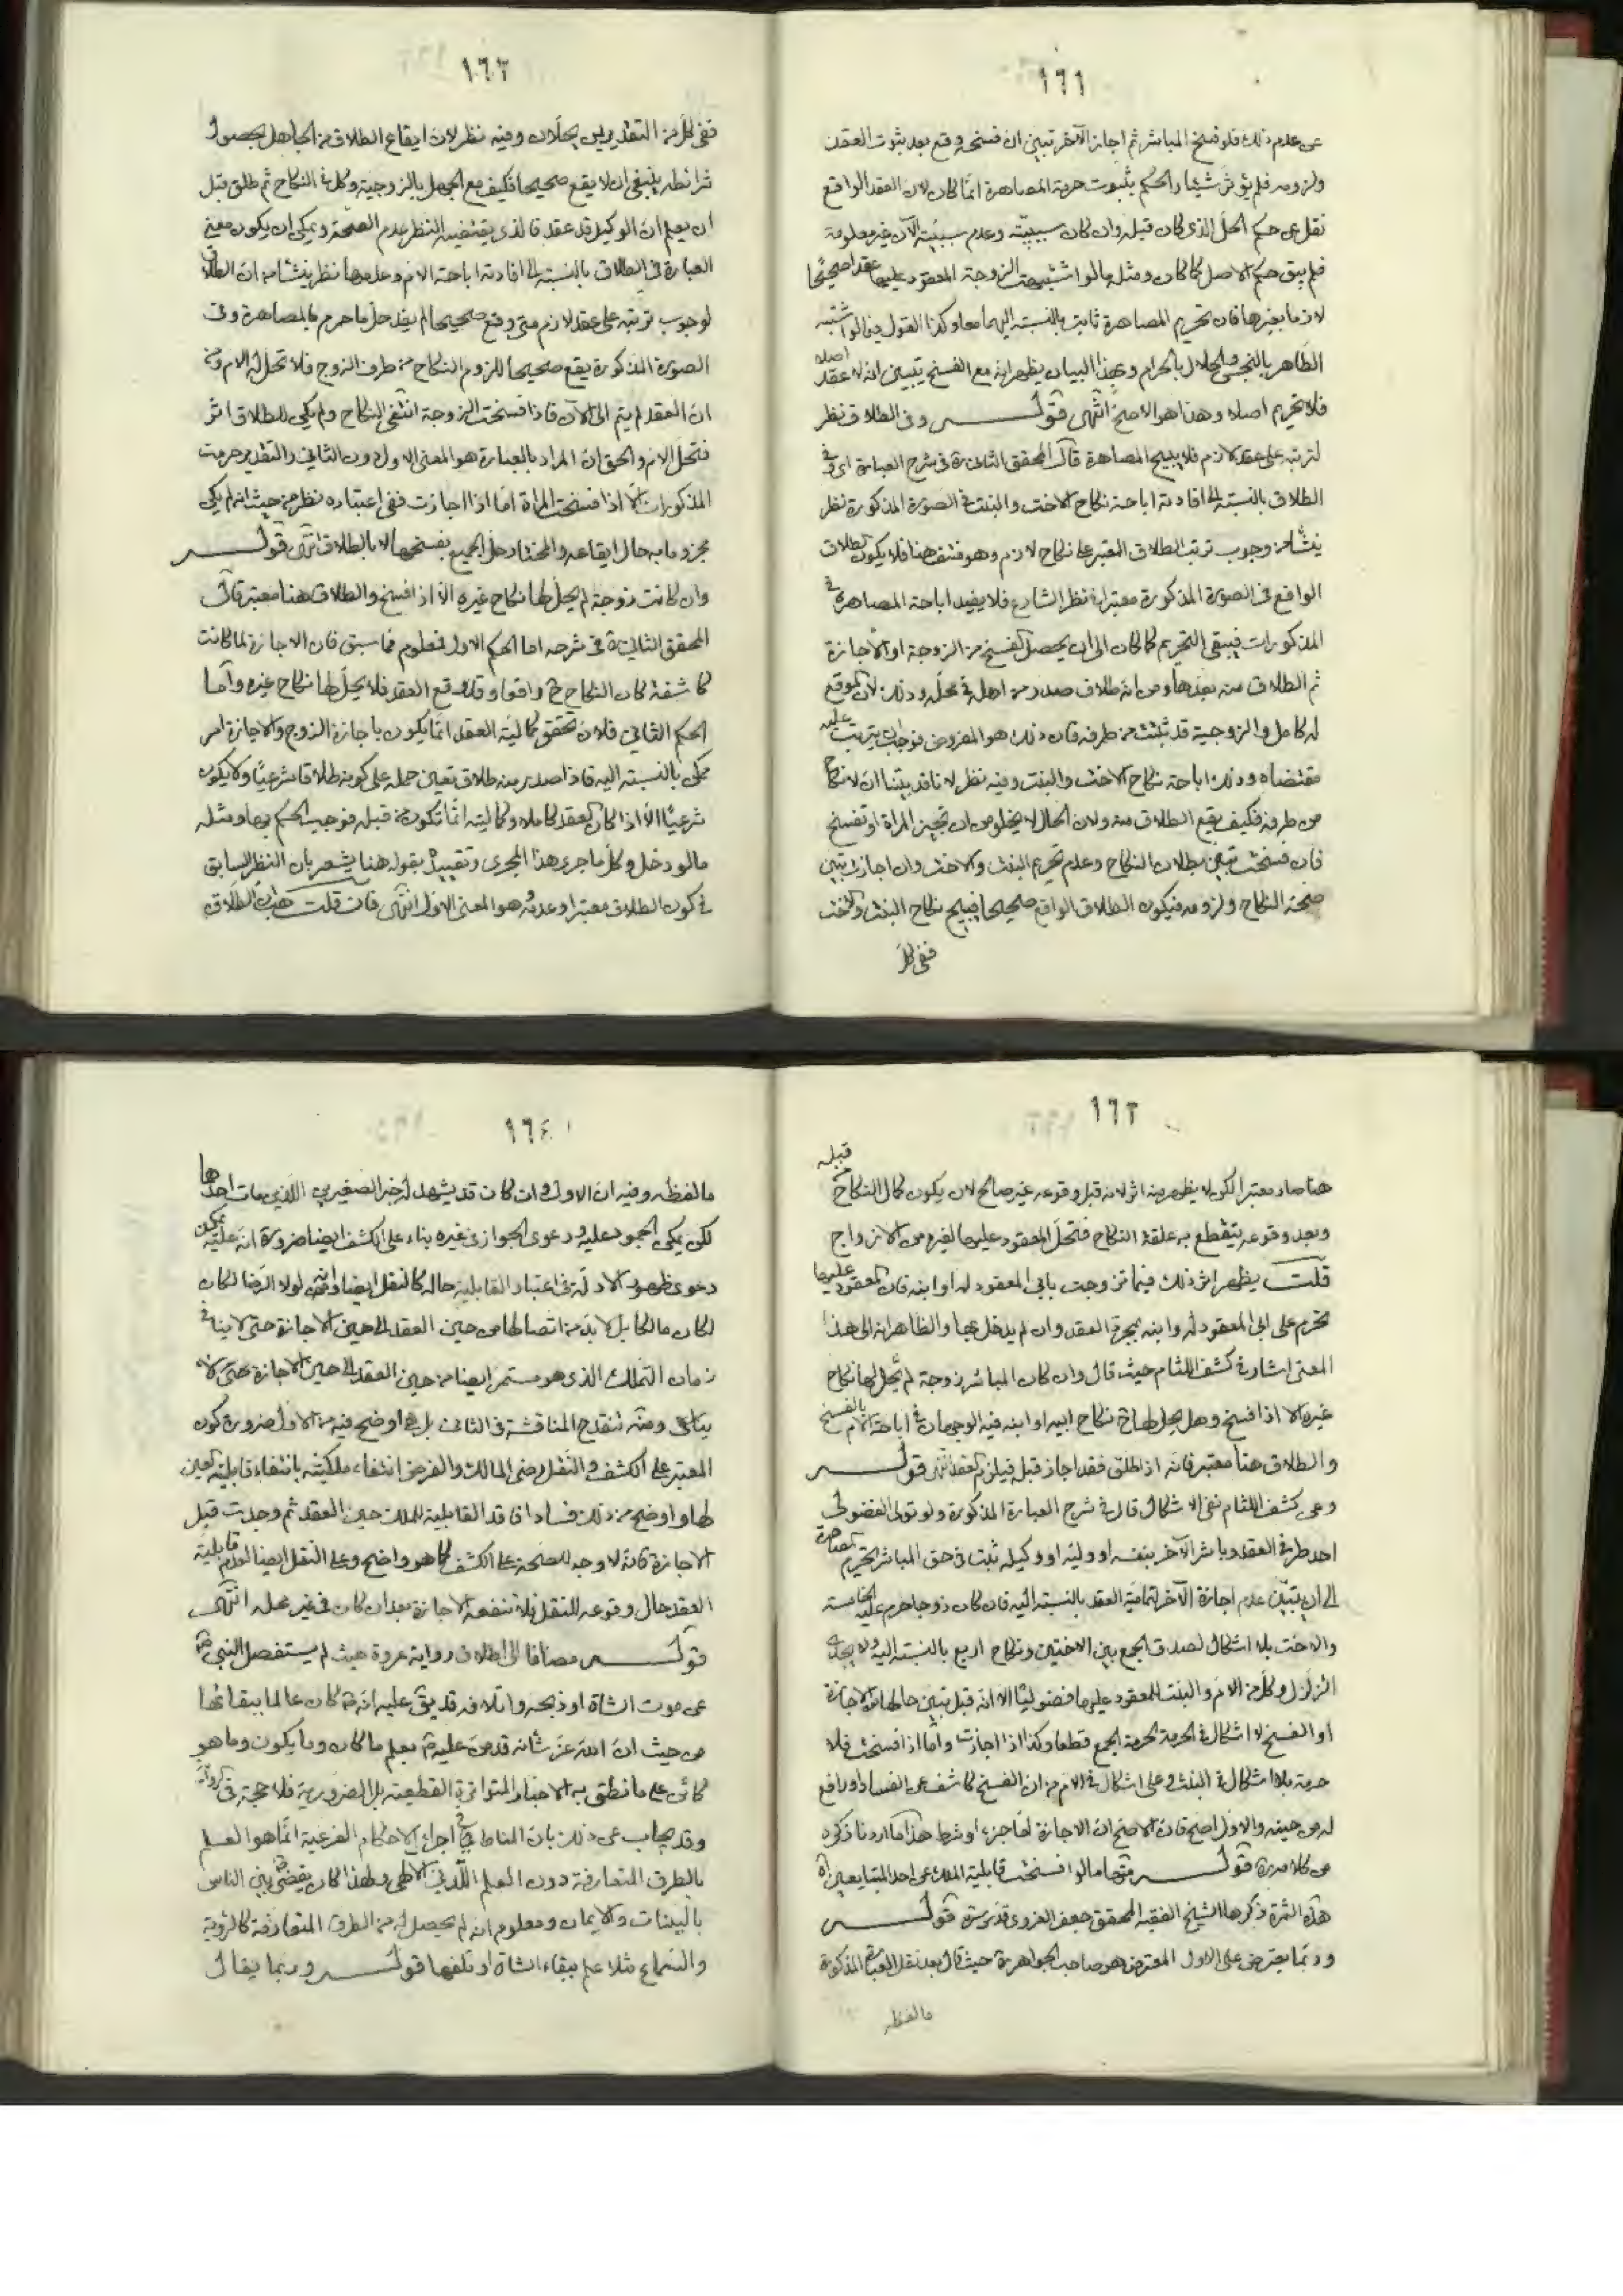 ١٦١
عن عدم ذلك فلو فسخ المباشر ثم اجاز الآخر تبين ان فسخه وقع بعد ثبوت العقد
ولزومه فلم يؤثر شيئا والحكم بثبوت حرمة المصاهرة انما كان لان العقد الواقع
نقل عن حكم الحل الذي كان قبله وان كان سببيته وعدم سببيته الآن غير معلومة
فلم يبق حكم الاصل كما كان ومثله ما لو اشتبهت الزوجة المعقود عليها عقدا صحيحا
لازما بغيرها فان تحريم المصاهرة ثابت بالنسبة اليهما معا وكذا القول فيما لو اشتبه
الطاهر بالنجس والحلال بالحرام وبهذا البيان يظهر انه مع الفسخ تبين انه لا عقد اصلا
فلا تحريم اصلا وهذا هو الاصح انتهى قوله وفي الطلاق نظر
لترتبه على عقد لازم فلا يبيح المصاهرة قال المحقق الثاني ره في شرح العبارة اي وفي
الطلاق بالنسبة الى افادته اباحة نكاح الاخت والبنت في الصورة المذكورة نظر
ينشأ من وجوب ترتب الطلاق المعتبر على نكاح لازم وهو منتف هنا فلا يكون الطلاق
الواقع في الصورة المذكورة معتبرا في نظر الشارع فلا يفيد اباحة المصاهرة في
المذكورات فيبقى التحريم كما كان الى ان يحصل الفسخ من الزوجة او الاجازة
ثم الطلاق منه بعدها ومن انه طلاق صدر من اهله في محله وذلك لان الموقع
له كامل والزوجية قد ثبتت من طرفه فان ذلك هو المفروض فوجب ان يترتب عليه
مقتضاه وذلك اباحة نكاح الاخت والبنت وفيه نظر لانا قد بينا ان لا نكاح
من طرفه فكيف يقع الطلاق منه ولان الحال لا يخلو من ان تجيز المراة او تفسخ
فان فسخت تبين بطلان النكاح وعدم تحريم البنت والاخت وان اجازت تبين
صحة النكاح ولزومه فيكون الطلاق الواقع صحيحا فيبيح نكاح البنت والاخت
ففي كل
١٦٢
ففي كل من التقديرين يحلان وفيه نظر لان ايقاع الطلاق من الجاهل بحصول
شرائطه ينبغي ان لا يقع صحيحا فكيف مع الجهل بالزوجية وكل في النكاح ثم طلق قبل
ان يعلم ان الوكيل قد عقد فالذي يقتضيه النظر عدم الصحة ويمكن ان يكون معنى
العبارة في الطلاق بالنسبة الى افادته اباحة الام وعدمها نظر ينشأ من ان الطلاق
لوجوب ترتبه على عقد لازم متى وقع صحيحا لم يفد حل ما حرم بالمصاهرة وفي
الصورة المذكورة يقع صحيحا للزوم النكاح من طرف الزوج فلا تحل له الام ومن
ان العقد لم يتم الى الآن فاذا فسخت الزوجة انتفى النكاح ولم يكن للطلاق اثر
فتحل الام والحق ان المراد بالعبارة هو المعنى الاول دون الثاني والتقدير حرمت
المذكورات الا اذا فسخت المراة اما اذا اجازت ففي اعتباره نظر من حيث انه لم يكن
مجزوما به حال ايقاعه والمختار حل الجميع بفسخها لا بالطلاق انتهى قوله
وان كانت زوجة لم يحل لها نكاح غيره الا اذا فسخ والطلاق هنا معتبر قال
المحقق الثاني ره في شرحه اما الحكم الاول فمعلوم مما سبق فان الاجازة لما كانت
كاشفة كان النكاح ح واقعا وقد وقع العقد فلا يحل لها نكاح غيره واما
الحكم الثاني فلان تحقق كمالية العقد انما يكون باجازة الزوج والاجازة امر
ممكن بالنسبة اليه فاذا صدر منه طلاق تعين حمله على كونه طلاقا شرعيا ولا يكون
شرعيا الا اذا كان العقد كاملا وكماليته انما تكون من قبله فوجب الحكم بها ومثله
ما لو دخل وكل ما جرى هذا المجرى وتقييده بقوله هنا يشعر بان النظر السابق
في كون الطلاق معتبرا وعدمه هو المعنى الاول انتهى فان قلت هذا الطلاق
١٦٣
هنا صار معتبرا لكن لا يظهر منه اثر لانه قبل وقوعه غير صالح لان يكون كمال النكاح قبله
وبعد وقوعه ينقطع به علقة النكاح فتحل المعقود عليها لغيره من الازواج
قلت يظهر اثر ذلك فيما تزوجت بابي المعقود له او ابنه فان المعقود عليها
تحرم على ابي المعقود له وابنه بمجرد العقد وان لم يدخل بها والظاهر انه الى هذا
المعنى اشار في كشف اللثام حيث قال وان كان المباشر زوجة لم يحل لها نكاح
غيره الا اذا فسخ وهل يحل لها ح نكاح ابيه او ابنه فيه الوجهان في اباحة الام بالفسخ
والطلاق هنا معتبر فانه اذا طلق فقد اجاز قبله فيلزم العقد انتهى قوله
وعن كشف اللثام نفي الاشكال قال في شرح العبارة المذكورة ولو تولى الفضولي
احد طرفي العقد وباشر الآخر بنفسه او وليه او وكيله ثبت في حق المباشر تحريم المصاهرة
الى ان يتبين عدم اجازة الآخر لتمامية العقد بالنسبة اليه فان كان زوجا حرم عليه الخامسة
والاخت بلا اشكال لصدق الجمع بين الاختين ونكاح اربع بالنسبة اليه ولا يجدي
التزلزل وكل من الام والبنت للمعقود عليها فضوليا الا انه قبل تبين حالها من الاجازة
او الفسخ لا اشكال في الحرمة لحرمة الجمع قطعا وكذا اذا اجازت واما اذا فسخت فلا
حرمة بلا اشكال في البنت وعلى اشكال في الام من ان الفسخ كاشف عن الفساد او رافع
له من حينه والاول اصح فان الاصح ان الاجازة لها جزء او شرط هذا ما اردنا ذكره
من كلامه ره قوله منها ما لو انسخت قابلية الملك عن احد المتبايعين اه
هذه الثمرة ذكرها الشيخ الفقيه المحقق جعفر الغروي قدس سره قوله
وربما يعترض على الاول المعترض هو صاحب الجواهر ره حيث قال بعد نقل العبارة المذكورة
ما لفظه
١٦٤
ما لفظه وفيه ان الاول وان كان قد يشهد له خبر الصغيرين اللذين مات احدهما
لكن يمكن الجمود عليه ودعوى الجواز في غيره بناء على الكشف ايضا ضرورة انه عليه يمكن
دعوى ظهور الادلة في اعتبار القابلية حاله كالنقل ايضا وانه لولا الرضا لكان
لكان مالكا بل لا بد من اتصالها من حين العقد الى حين الاجازة حتى لا ينافي
زمان التملك الذي هو مستمر ايضا من حين العقد الى حين الاجازة حتى لا
ينافي ومنه تنقدح المناقشة في الثاني بل هي اوضح فيه من الاول ضرورة كون
المعتبر على الكشف والنقل رضى المالك والفرض انتفاء ملكيته بانتفاء قابلية العين
لها واوضح من ذلك فسادا فاقد القابلية للملك حين العقد ثم وجدت قبل
الاجازة فانه لا وجه للصحة على الكشف كما هو واضح وعلى النقل ايضا لعدم قابلية
العقد حال وقوعه للنقل فلا تنفعه الاجازة بعد ان كان في غير محله انتهى
قوله مضافا الى اطلاق رواية عروة حيث لم يستفصل النبي ص
عن موت الشاة او ذبحه واتلافه قد يق عليه انه ص كان عالما ببقائها
من حيث ان الله عز شانه قد من عليه ص بعلم ما كان وما يكون وما هو
كائن على ما نطق به الاخبار المتواترة القطعية بل الضرورية فلا حجة في الرواية
وقد يجاب عن ذلك بان المناط في اجراء الاحكام الفرعية انما هو العلم
بالطرق المتعارفة دون العلم اللدني الالهي ولهذا كان يقضي ص بين الناس
بالبينات والايمان ومعلوم انه لم يحصل له من الطرق المتعارفة كالرؤية
والسماع مثلا علم ببقاء الشاة او تلفها قوله وربما يقال